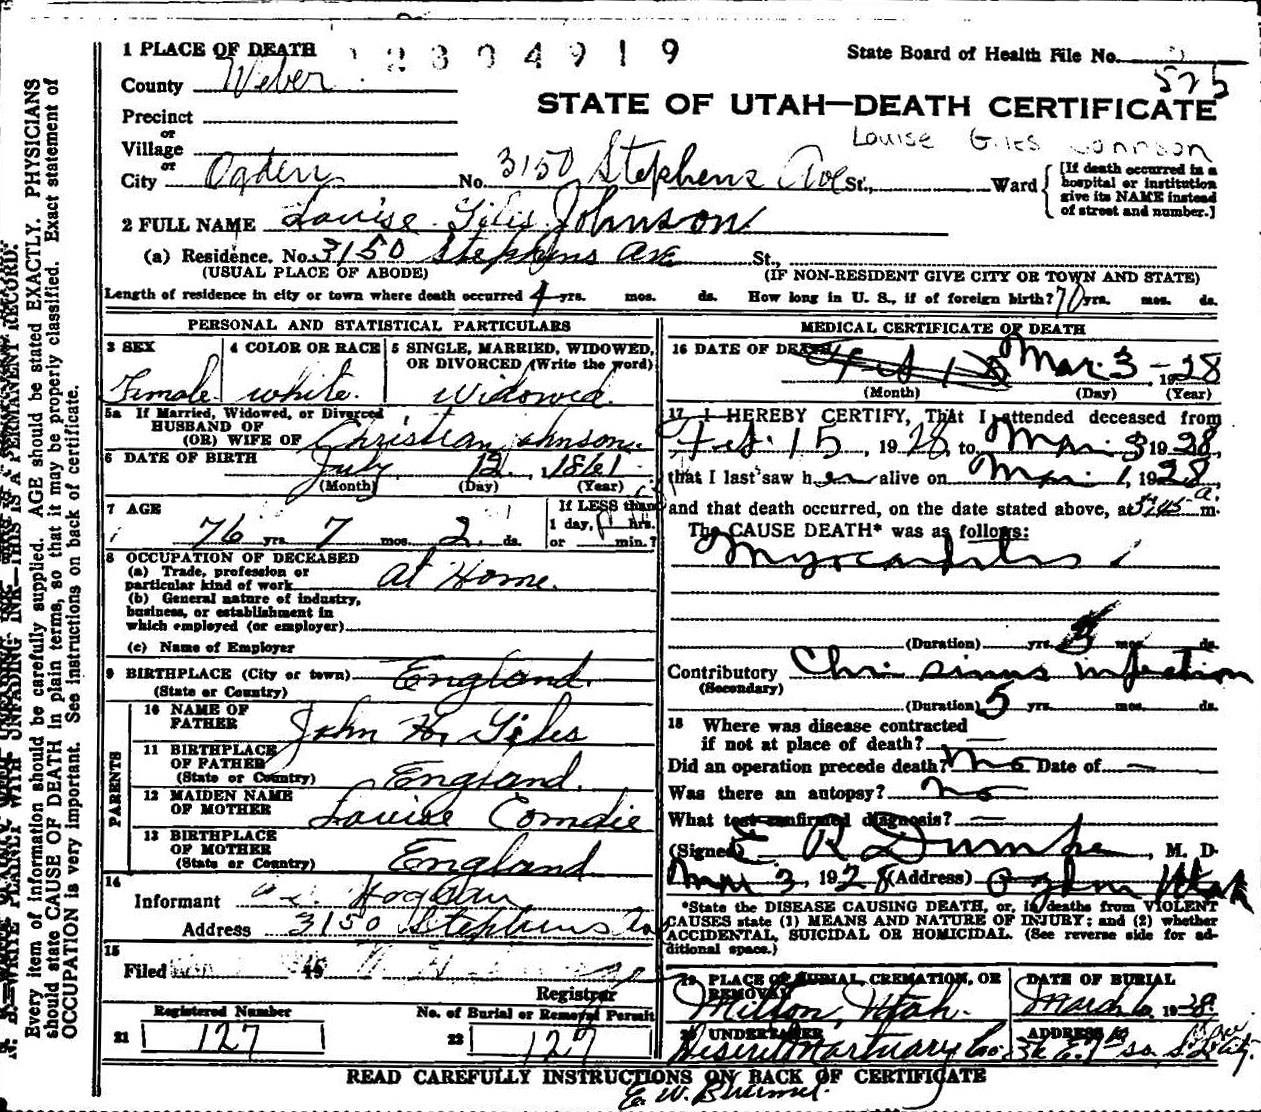 1 PLACE OF DEATH 12304919
State Board of Health File No.
575
County Weber
STATE OF UTAH—DEATH CERTIFICATE
Precinct
or
Village
Louise Giles Johnson
or
City Ogden No. 3150 Stephens Ave St., Ward
[If death occurred in a hospital or institution give its NAME instead of street and number.]
2 FULL NAME Louise Giles Johnson
(a) Residence. No. 3150 Stephens Ave St.,
(USUAL PLACE OF ABODE) (IF NON-RESIDENT GIVE CITY OR TOWN AND STATE)
Length of residence in city or town where death occurred 4 yrs. mos. ds. How long in U. S., if of foreign birth? 70 yrs. mos. ds.
PERSONAL AND STATISTICAL PARTICULARS
3 SEX 4 COLOR OR RACE 5 SINGLE, MARRIED, WIDOWED,
OR DIVORCED (Write the word)
Female white Widowed
5a If Married, Widowed, or Divorced
HUSBAND OF
(OR) WIFE OF Christian Johnson
6 DATE OF BIRTH July 12, 1861
(Month) (Day) (Year)
7 AGE
76 yrs. 7 mos. 2 ds.
If LESS than
1 day, hrs.
or min.?
8 OCCUPATION OF DECEASED
(a) Trade, profession or
particular kind of work At Home.
(b) General nature of industry,
business, or establishment in
which employed (or employer)
(c) Name of Employer
9 BIRTHPLACE (City or town) England.
(State or Country)
PARENTS
10 NAME OF
FATHER John H. Giles
11 BIRTHPLACE
OF FATHER England.
(State or Country)
12 MAIDEN NAME
OF MOTHER Louise Comdie
13 BIRTHPLACE
OF MOTHER England
(State or Country)
14
Informant
Address 3150 Stephens
15
Filed 19
Registrar
Registered Number No. of Burial or Removal Permit
21 127 22 127
MEDICAL CERTIFICATE OF DEATH
16 DATE OF DEATH Feb 18 Mar. 3 - 1928
(Month) (Day) (Year)
17 I HEREBY CERTIFY, That I attended deceased from
Feb. 15, 1928, to Mar. 3 1928,
that I last saw her alive on Mar. 1, 1928,
and that death occurred, on the date stated above, at 5:45 a. m.
The CAUSE DEATH* was as follows:
Myocarditis
(Duration) yrs. mos. ds.
Contributory Chr. sinus infection
(Secondary)
(Duration) 5 yrs. mos. ds.
18 Where was disease contracted
if not at place of death? —
Did an operation precede death? no Date of —
Was there an autopsy? no
What test confirmed diagnosis? —
(Signed) E R Dumke, M. D
Mar 3, 1928 (Address) Ogden Utah
*State the DISEASE CAUSING DEATH, or, in deaths from VIOLENT
CAUSES state (1) MEANS AND NATURE OF INJURY; and (2) whether
ACCIDENTAL, SUICIDAL OR HOMICIDAL. (See reverse side for ad-
ditional space.)
19 PLACE OF BURIAL, CREMATION, OR
REMOVAL
Milton, Utah.
DATE OF BURIAL
March 6, 1928.
20 UNDERTAKER
Deseret Mortuary Co.
ADDRESS
36 E. 7th So. S.L. City.
READ CAREFULLY INSTRUCTIONS ON BACK OF CERTIFICATE
N. B. WRITE PLAINLY WITH UNFADING INK—THIS IS A PERMANENT RECORD.
Every item of information should be carefully supplied. AGE should be stated EXACTLY. PHYSICIANS
should state CAUSE OF DEATH in plain terms, so that it may be properly classified. Exact statement of
OCCUPATION is very important. See instructions on back of certificate.